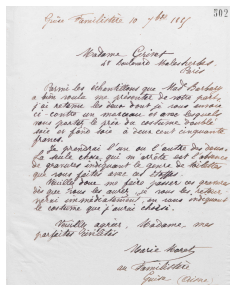 502
Guise Familistère 10 7bre 1887
Madame Crinon
48 boulevard Malesherbes
Paris
Parmi les échantillons que Mad. Barbary
a bien voulu me présenter de votre part,
j'ai retenu les deux dont je vous envoie
ci-contre un morceau et avec lesquels
vous portez le prix du costume doublé
soie et fond soie à deux cent cinquante
francs.
Je prendrai l'un ou l'autre des deux.
La seule chose qui m'arrête est l'absence
de gravures indiquant le genre de toilettes
que vous faites avec ces étoffes.
Veuillez donc me faire passer ces gravures
dès que vous les aurez, je vous les
renverrai immédiatement, en vous indiquant
le costume que j'aurai choisi.
Veuillez agréer, Madame, mes
parfaites civilités
Marie Moret
au Familistère
Guise (Aisne)